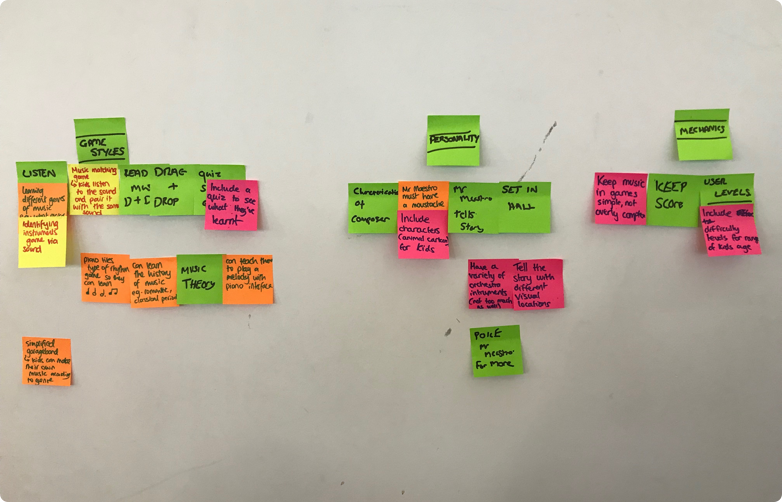 GAME
STYLES
LISTEN
Learning
different genres
of music
Identifying
instruments
game via
sound
Music matching
game
↳ kids listen
to the sound
and pair it
with the same
sound
READ
D+D
DRAG
+
DROP
QUIZ
Include a
quiz to see
what they've
learnt
piano tiles
type of rhythm
game so they
can learn
can learn
the history
of music
eg. romantic,
classical period
MUSIC
THEORY
can teach them
to play a
melody with
piano interface
simplified
garageband
↳ kids can make
their own
music
to genre
PERSONALITY
of
composer
Mr Maestro
must have
a moustache
Include
characters
(animal cartoon
for kids
Mr
Maestro
tells
story
SET IN
HALL
Have a
variety of
orchestra
intruments
(not too much
Tell the
story with
different
visual
locations
POKE
Mr
Meistro
For More
MECHANICS
Keep music
in games
simple, not
overly complex
KEEP
SCORE
USER
LEVELS
Include
difficulty
levels for
of kids age